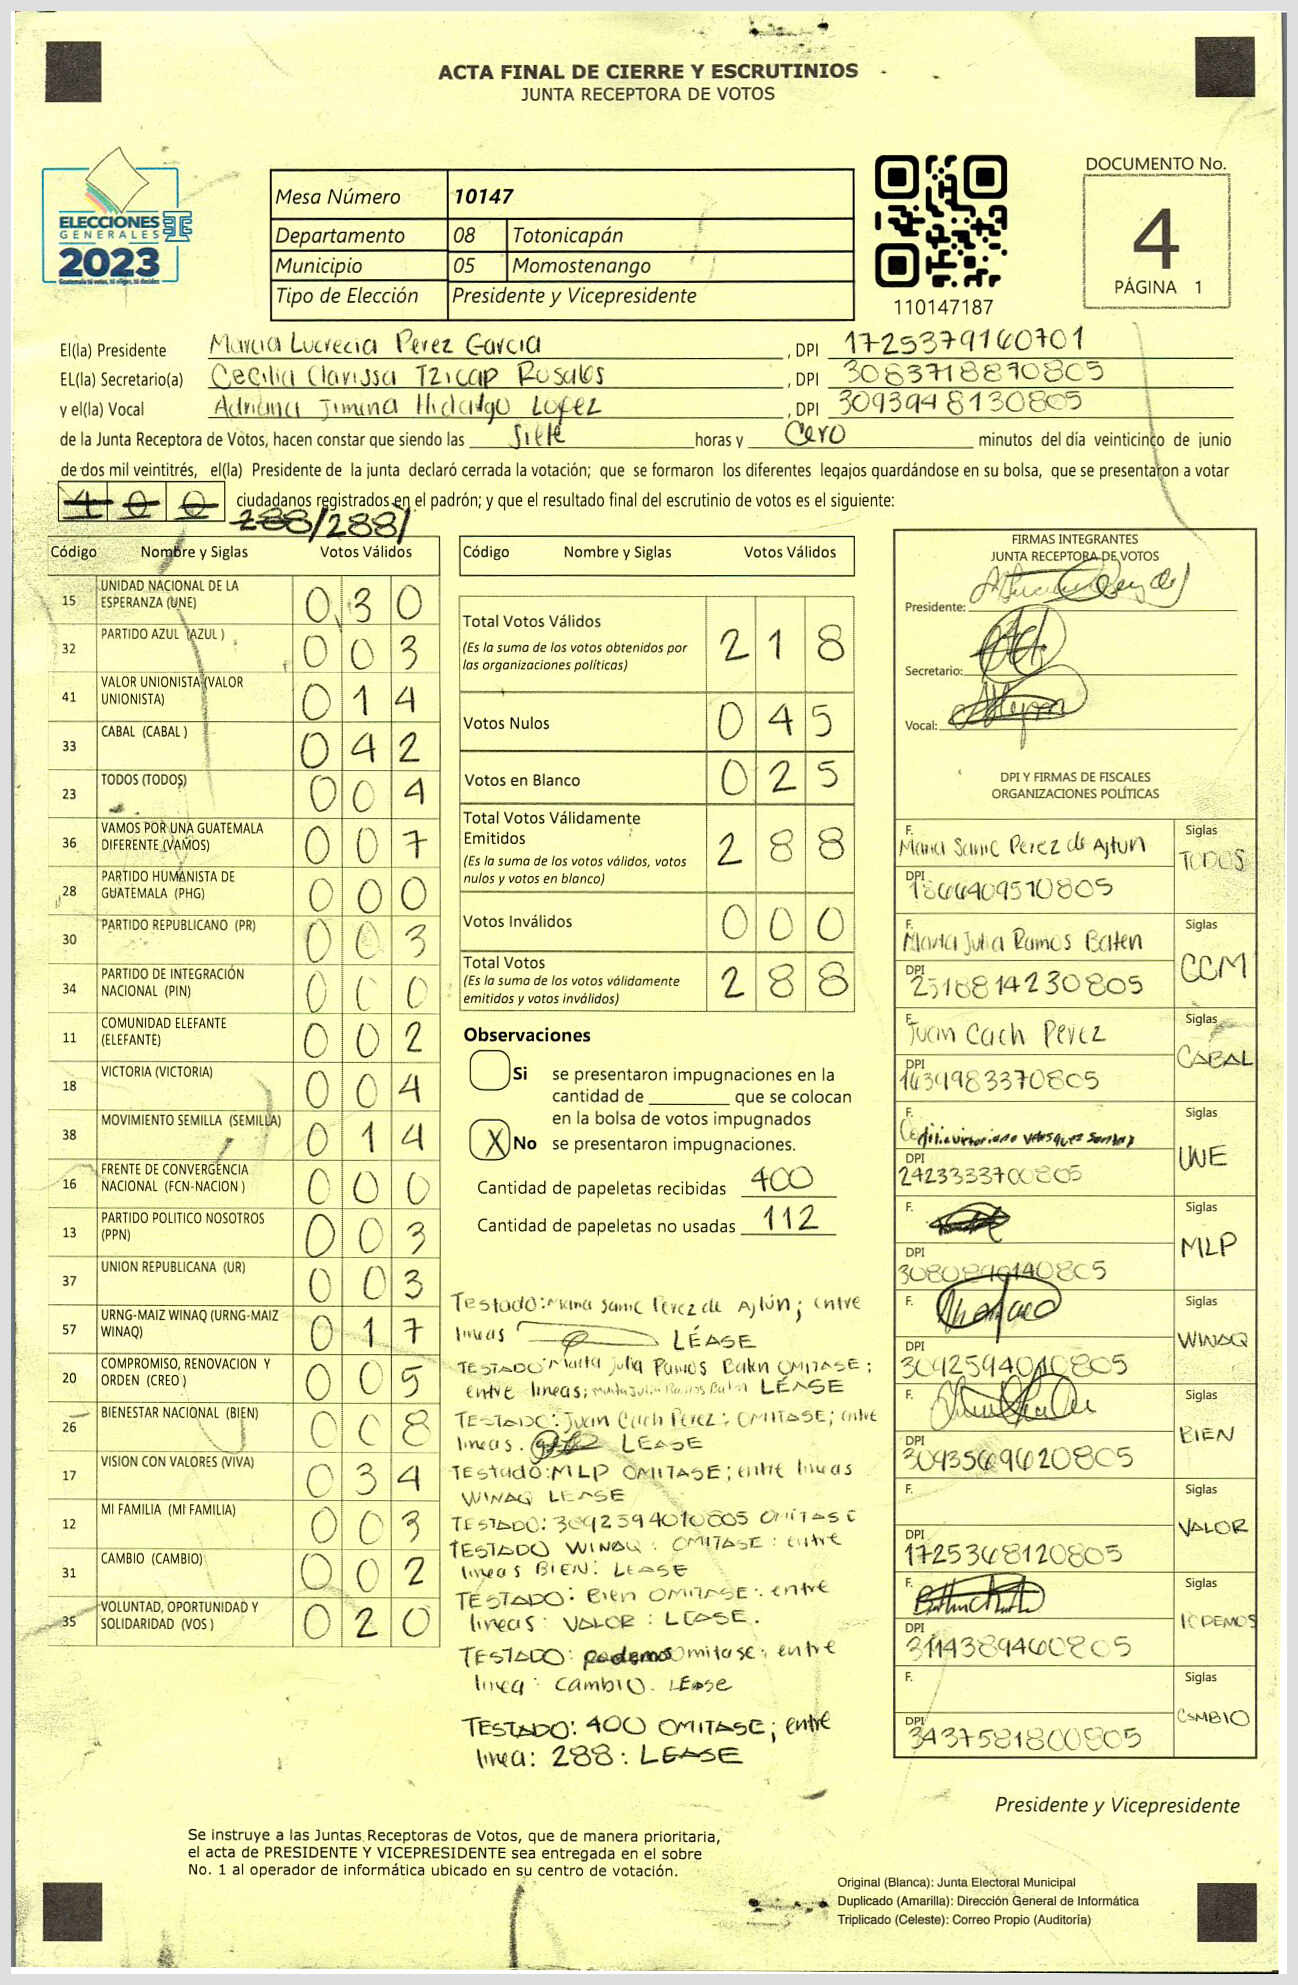 ACTA FINAL DE CIERRE Y ESCRUTINIOS
JUNTA RECEPTORA DE VOTOS
ELECCIONES
GENERALES
2023
Guatemala tú votas, tú eliges, tú decides
Mesa Número 10147
Departamento 08 Totonicapán
Municipio 05 Momostenango
Tipo de Elección Presidente y Vicepresidente
110147187
DOCUMENTO No.
4
PÁGINA 1
El(la) Presidente Marcia Lucrecia Perez Garcia , DPI 1725379160701
EL(la) Secretario(a) Cecilia Clarissa Tzicap Rosales , DPI 3083718870805
y el(la) Vocal Adriana Jimena Hidalgo Lopez , DPI 3093948130805
de la Junta Receptora de Votos, hacen constar que siendo las Siete horas y Cero minutos del día veinticinco de junio
de dos mil veintitrés, el(la) Presidente de la junta declaró cerrada la votación; que se formaron los diferentes legajos guardándose en su bolsa, que se presentaron a votar
400 ciudadanos registrados en el padrón; y que el resultado final del escrutinio de votos es el siguiente:
288/288/
Código Nombre y Siglas Votos Válidos
15 UNIDAD NACIONAL DE LA ESPERANZA (UNE) 030
32 PARTIDO AZUL (AZUL ) 003
41 VALOR UNIONISTA (VALOR UNIONISTA) 014
33 CABAL (CABAL ) 042
23 TODOS (TODOS) 004
36 VAMOS POR UNA GUATEMALA DIFERENTE (VAMOS) 007
28 PARTIDO HUMANISTA DE GUATEMALA (PHG) 000
30 PARTIDO REPUBLICANO (PR) 003
34 PARTIDO DE INTEGRACIÓN NACIONAL (PIN) 000
11 COMUNIDAD ELEFANTE (ELEFANTE) 002
18 VICTORIA (VICTORIA) 004
38 MOVIMIENTO SEMILLA (SEMILLA) 014
16 FRENTE DE CONVERGENCIA NACIONAL (FCN-NACION ) 000
13 PARTIDO POLITICO NOSOTROS (PPN) 003
37 UNION REPUBLICANA (UR) 003
57 URNG-MAIZ WINAQ (URNG-MAIZ WINAQ) 017
20 COMPROMISO, RENOVACION Y ORDEN (CREO ) 005
26 BIENESTAR NACIONAL (BIEN) 008
17 VISION CON VALORES (VIVA) 034
12 MI FAMILIA (MI FAMILIA) 003
31 CAMBIO (CAMBIO) 002
35 VOLUNTAD, OPORTUNIDAD Y SOLIDARIDAD (VOS ) 020
Código Nombre y Siglas Votos Válidos
Total Votos Válidos 218
(Es la suma de los votos obtenidos por
las organizaciones políticas)
Votos Nulos 045
Votos en Blanco 025
Total Votos Válidamente
Emitidos 288
(Es la suma de los votos válidos, votos
nulos y votos en blanco)
Votos Inválidos 000
Total Votos 288
(Es la suma de los votos válidamente
emitidos y votos inválidos)
Observaciones
Si se presentaron impugnaciones en la
cantidad de ________ que se colocan
en la bolsa de votos impugnados
X No se presentaron impugnaciones.
Cantidad de papeletas recibidas 400
Cantidad de papeletas no usadas 112
Testado: Maria Sanic Perez de Ajtún; entre
lineas LÉASE
TESTADO: Marta Julia Ramos Baten OMITASE;
entre lineas; Marta Julia Ramos Baten LÉASE
TESTADO: Juan Cach Perez: OMITASE; entre
lineas. LEASE
Testado: MLP OMITASE; entre lineas
WINAQ LEASE
TESTADO: 3092594010805 OMITASE
TESTADO WINAQ: OMITASE: entre
lineas BIEN: LEASE
TESTADO: Bien OMITASE: entre
lineas: VALOR: LEASE.
TESTADO: podemos Omitase: entre
linea: cambio. LEASE
TESTADO: 400 OMITASE; entre
linea: 288: LEASE
FIRMAS INTEGRANTES
JUNTA RECEPTORA DE VOTOS
Presidente:
Secretario:
Vocal:
DPI Y FIRMAS DE FISCALES
ORGANIZACIONES POLÍTICAS
F. Maria Sanic Perez de Ajtun Siglas TODOS
DPI 1866409510805
F. Marta Julia Ramos Baten Siglas CCM
DPI 2518814230805
F. Juan Cach Perez Siglas CABAL
DPI 1634983370805
F. Siglas UNE
DPI 2423333700805
F. Siglas MLP
DPI
F. Siglas WINAQ
DPI 3092594010805
F. Siglas BIEN
DPI 3093569620805
F. Siglas VALOR
DPI 1725368120805
F. Siglas PODEMOS
DPI 3114389460805
F. Siglas CAMBIO
DPI 3437581800805
Presidente y Vicepresidente
Se instruye a las Juntas Receptoras de Votos, que de manera prioritaria,
el acta de PRESIDENTE Y VICEPRESIDENTE sea entregada en el sobre
No. 1 al operador de informática ubicado en su centro de votación.
Original (Blanca): Junta Electoral Municipal
Duplicado (Amarilla): Dirección General de Informática
Triplicado (Celeste): Correo Propio (Auditoría)